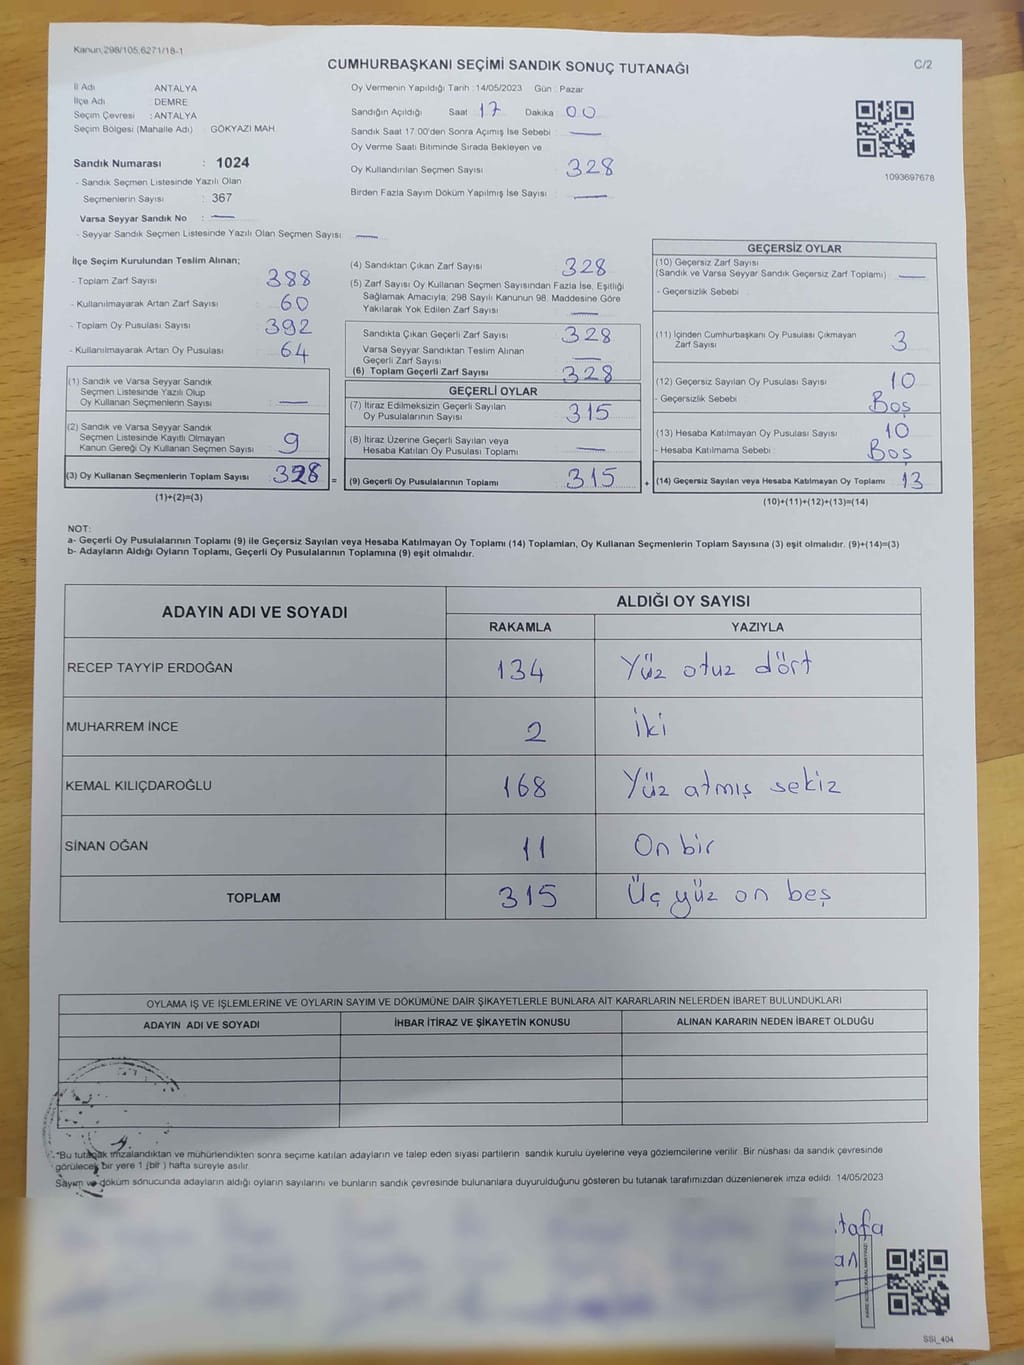 Kanun;298/105,6271/18-1
CUMHURBAŞKANI SEÇİMİ SANDIK SONUÇ TUTANAĞI
C/2
İl Adı ANTALYA
İlçe Adı DEMRE
Seçim Çevresi : ANTALYA
Seçim Bölgesi (Mahalle Adı) : GÖKYAZI MAH
Sandık Numarası : 1024
- Sandık Seçmen Listesinde Yazılı Olan
Seçmenlerin Sayısı : 367
Varsa Seyyar Sandık No : —
- Seyyar Sandık Seçmen Listesinde Yazılı Olan Seçmen Sayısı: —
Oy Vermenin Yapıldığı Tarih : 14/05/2023 Gün : Pazar
Sandığın Açıldığı Saat 17 Dakika 00
Sandık Saat 17:00'den Sonra Açımış İse Sebebi : —
Oy Verme Saati Bitiminde Sırada Bekleyen ve
Oy Kullandırılan Seçmen Sayısı : 328
Birden Fazla Sayım Döküm Yapılmış İse Sayısı : —
1093697678
İlçe Seçim Kurulundan Teslim Alınan;
- Toplam Zarf Sayısı : 388
- Kullanılmayarak Artan Zarf Sayısı : 60
- Toplam Oy Pusulası Sayısı : 392
- Kullanılmayarak Artan Oy Pusulası : 64
(1) Sandık ve Varsa Seyyar Sandık
Seçmen Listesinde Yazılı Olup
Oy Kullanan Seçmenlerin Sayısı : —
(2) Sandık ve Varsa Seyyar Sandık
Seçmen Listesinde Kayıtlı Olmayan
Kanun Gereği Oy Kullanan Seçmen Sayısı : 9
(3) Oy Kullanan Seçmenlerin Toplam Sayısı : 328 =
(1)+(2)=(3)
(4) Sandıktan Çıkan Zarf Sayısı : 328
(5) Zarf Sayısı Oy Kullanan Seçmen Sayısından Fazla İse, Eşitliği
Sağlamak Amacıyla; 298 Sayılı Kanunun 98. Maddesine Göre
Yakılarak Yok Edilen Zarf Sayısı : —
Sandıkta Çıkan Geçerli Zarf Sayısı : 328
Varsa Seyyar Sandıktan Teslim Alınan
Geçerli Zarf Sayısı : —
(6) Toplam Geçerli Zarf Sayısı : 328
GEÇERLİ OYLAR
(7) İtiraz Edilmeksizin Geçerli Sayılan
Oy Pusulalarının Sayısı : 315
(8) İtiraz Üzerine Geçerli Sayılan veya
Hesaba Katılan Oy Pusulası Toplamı : —
(9) Geçerli Oy Pusulalarının Toplamı : 315 +
GEÇERSİZ OYLAR
(10) Geçersiz Zarf Sayısı
(Sandık ve Varsa Seyyar Sandık Geçersiz Zarf Toplamı) : —
- Geçersizlik Sebebi :
(11) İçinden Cumhurbaşkanı Oy Pusulası Çıkmayan
Zarf Sayısı : 3
(12) Geçersiz Sayılan Oy Pusulası Sayısı : 10
- Geçersizlik Sebebi : Boş
(13) Hesaba Katılmayan Oy Pusulası Sayısı : 10
- Hesaba Katılmama Sebebi : Boş
(14) Geçersiz Sayılan veya Hesaba Katılmayan Oy Toplamı : 13
(10)+(11)+(12)+(13)=(14)
NOT:
a- Geçerli Oy Pusulalarının Toplamı (9) ile Geçersiz Sayılan veya Hesaba Katılmayan Oy Toplamı (14) Toplamları, Oy Kullanan Seçmenlerin Toplam Sayısına (3) eşit olmalıdır. (9)+(14)=(3)
b- Adayların Aldığı Oyların Toplamı, Geçerli Oy Pusulalarının Toplamına (9) eşit olmalıdır.
ADAYIN ADI VE SOYADI ALDIĞI OY SAYISI
RAKAMLA YAZIYLA
RECEP TAYYİP ERDOĞAN 134 Yüz otuz dört
MUHARREM İNCE 2 İki
KEMAL KILIÇDAROĞLU 168 Yüz atmış sekiz
SİNAN OĞAN 11 On bir
TOPLAM 315 Üç yüz on beş
OYLAMA İŞ VE İŞLEMLERİNE VE OYLARIN SAYIM VE DÖKÜMÜNE DAİR ŞİKAYETLERLE BUNLARA AİT KARARLARIN NELERDEN İBARET BULUNDUKLARI
ADAYIN ADI VE SOYADI İHBAR İTİRAZ VE ŞİKAYETİN KONUSU ALINAN KARARIN NEDEN İBARET OLDUĞU
*Bu tutanak imzalandıktan ve mühürlendikten sonra seçime katılan adayların ve talep eden siyasi partilerin sandık kurulu üyelerine veya gözlemcilerine verilir. Bir nüshası da sandık çevresinde
görülecek bir yere 1 (bir) hafta süreyle asılır.
Sayım ve döküm sonucunda adayların aldığı oyların sayılarını ve bunların sandık çevresinde bulunanlara duyurulduğunu gösteren bu tutanak tarafımızdan düzenlenerek imza edildi. 14/05/2023
tafa
an
SSI_404